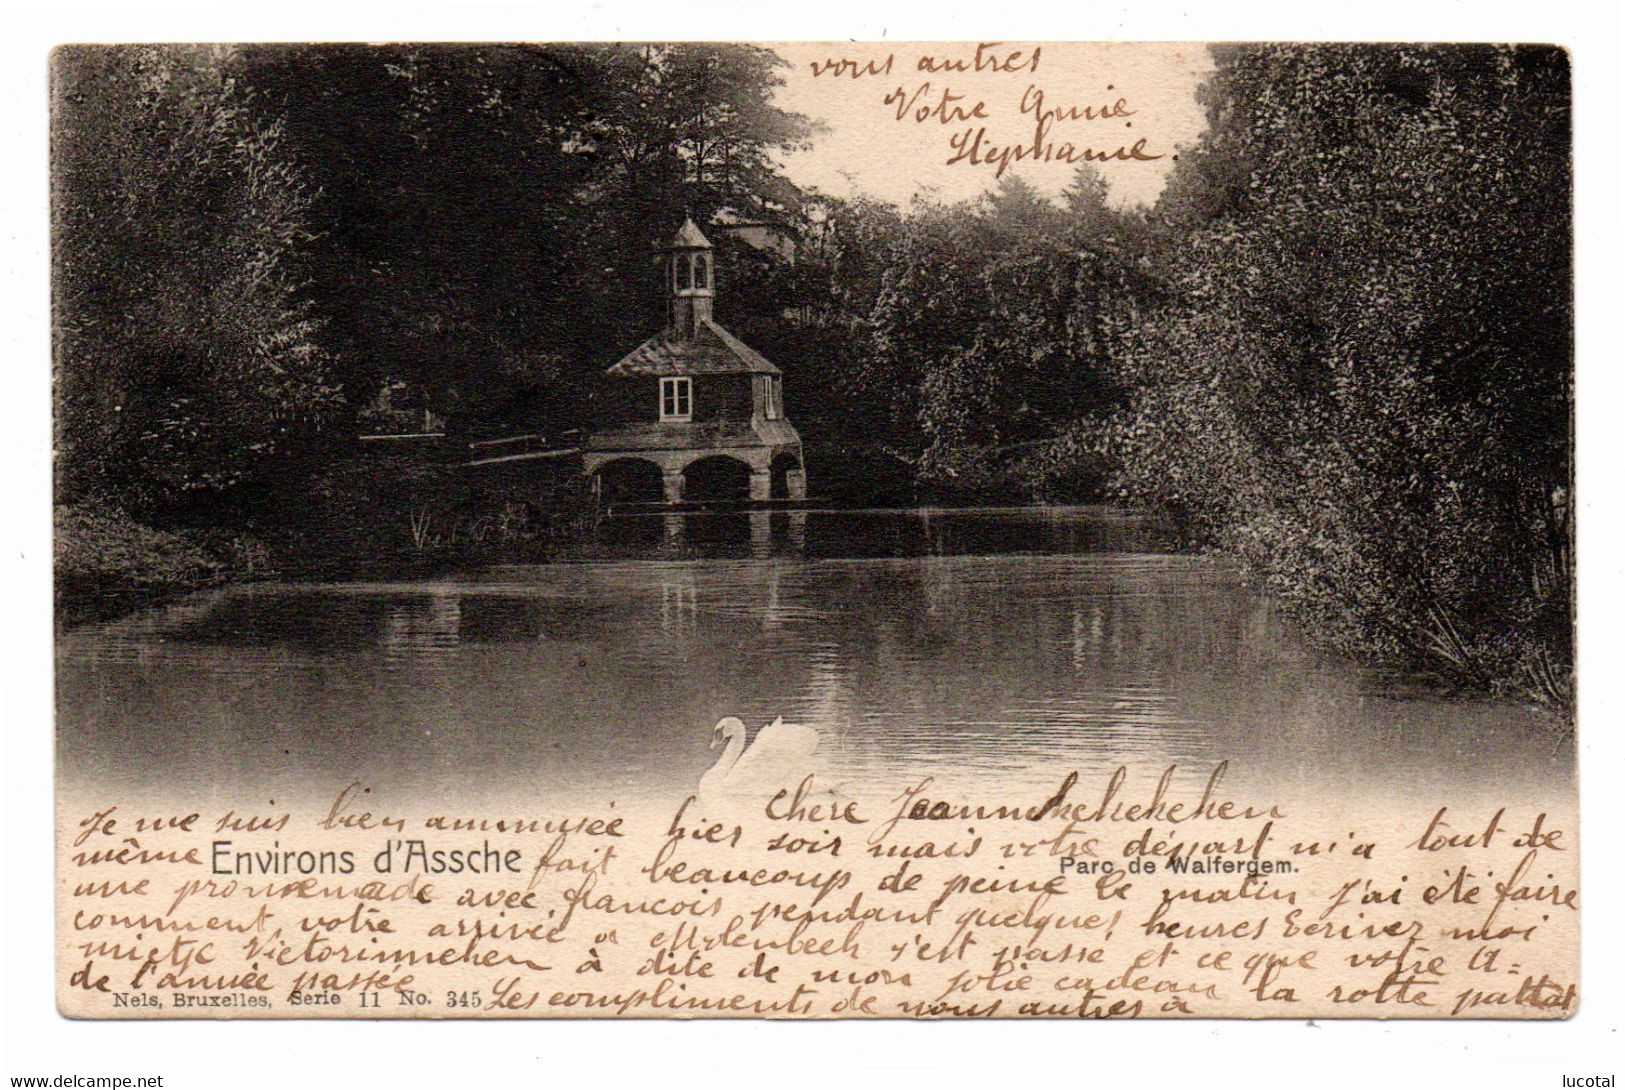 vous autres
Votre Amie
Stephanie.
Chère
Je me suis bien ammusée hier soir mais votre départ m'a tout de
même fait beaucoup de peine le matin J'ai été faire
Environs d'Assche
Parc de Walfergem.
une promenade avec francois pendant quelques heures Ecrivez moi
comment votre arrivée a Molenbeek s'est passé et ce que votre A=
mietje Victorinneken à dite de mon jolie cadeau la rotte pattat
de l'année passée Les compliments de nous autres à
Nels, Bruxelles, Serie 11 No. 345
lucotal